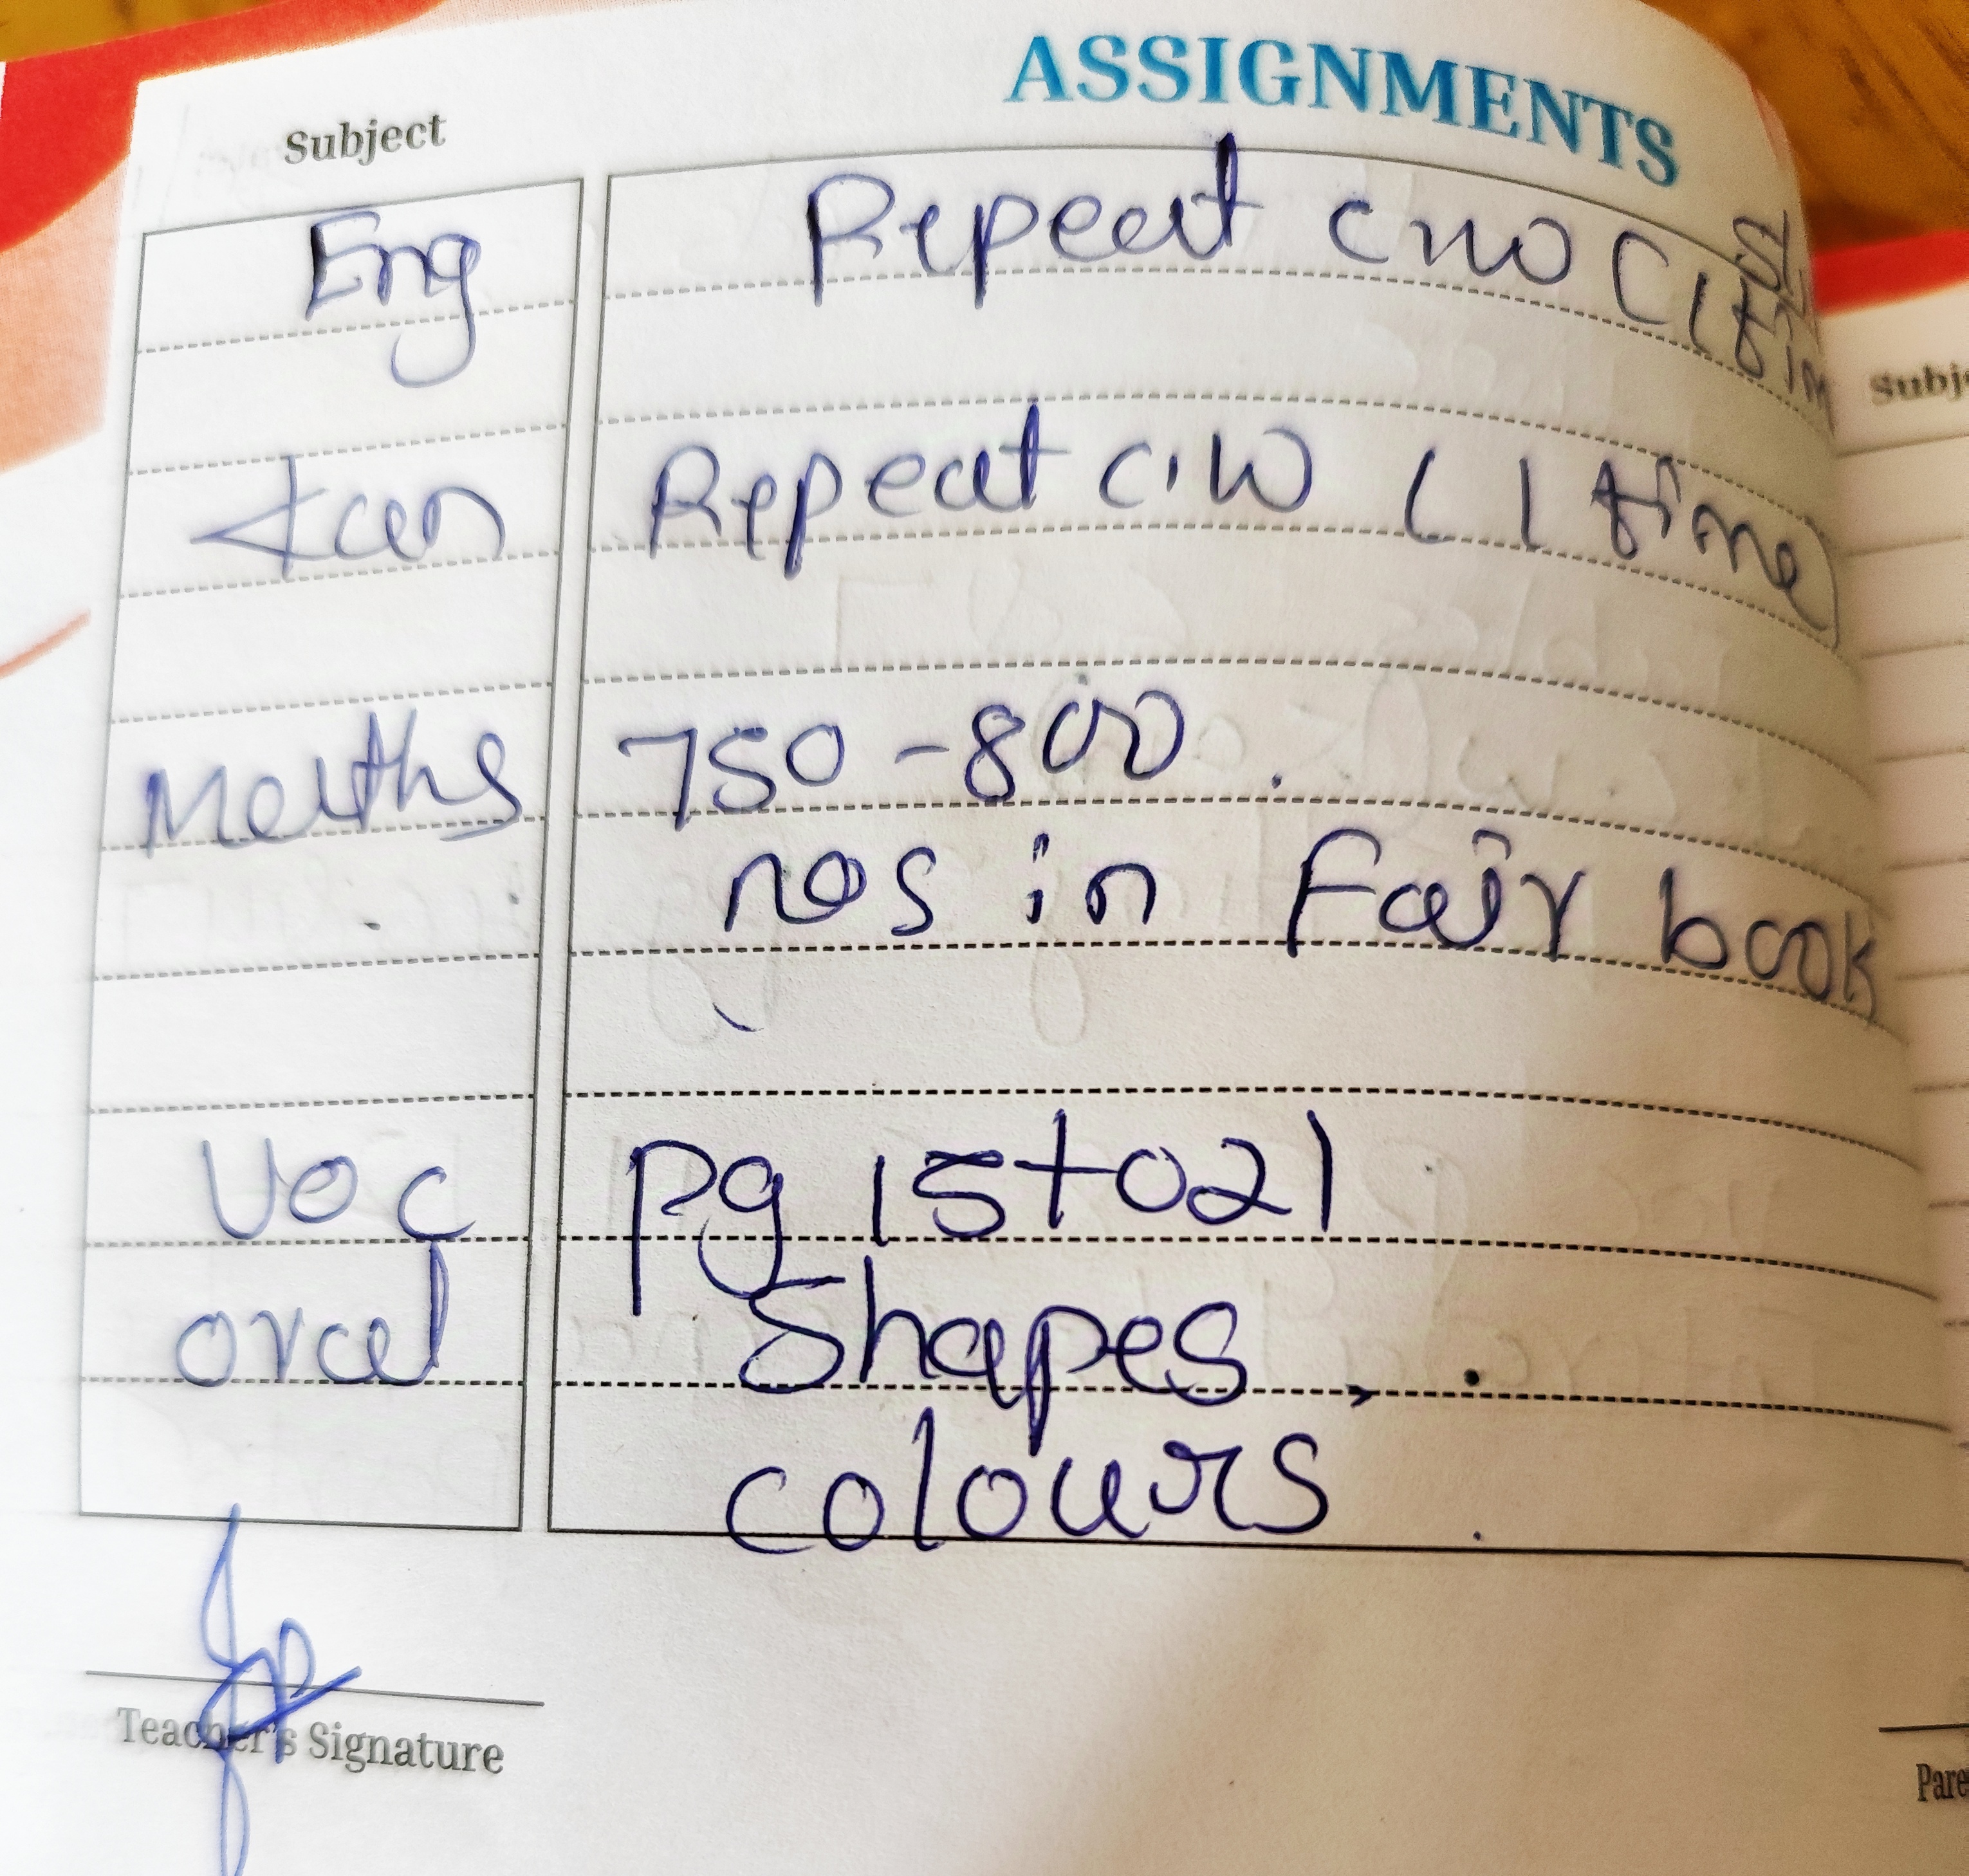 ASSIGNMENTS
Subject
Eng Repeat cwo (1 tim
Kan Repeat c.w (1 time)
Subj
Maths 750-800.
nos in Fair book
Voc pg 15 to 21
oral Shapes,
colours.
Teacher's Signature
Pare